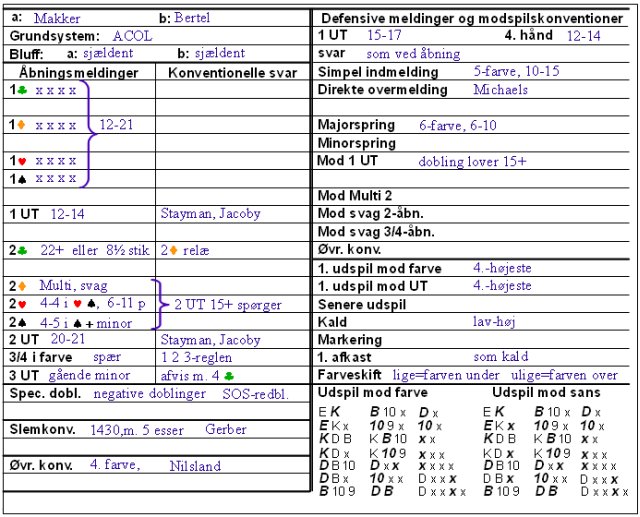 a: Makker b: Bertel
Grundsystem: ACOL
Bluff: a: sjældent b: sjældent
Åbningsmeldinger Konventionelle svar
1♣ x x x x
1♦ x x x x 12-21
1♥ x x x x
1♠ x x x x
1 UT 12-14 Stayman, Jacoby
2♣ 22+ eller 8½ stik 2♦ relæ
2♦ Multi, svag
2♥ 4-4 i ♥ ♠, 6-11 p 2 UT 15+ spørger
2♠ 4-5 i ♠ + minor
2 UT 20-21 Stayman, Jacoby
3/4 i farve spær 1 2 3-reglen
3 UT gående minor afvis m. 4 ♣
Spec. dobl. negative doblinger SOS-redbl.
Slemkonv. 1430,m. 5 esser Gerber
Øvr. konv. 4. farve, Nilsland
Defensive meldinger og modspilskonventioner
1 UT 15-17 4. hånd 12-14
svar som ved åbning
Simpel indmelding 5-farve, 10-15
Direkte overmelding Michaels
Majorspring 6-farve, 6-10
Minorspring
Mod 1 UT dobling lover 15+
Mod Multi 2
Mod svag 2-åbn.
Mod svag 3/4-åbn.
Øvr. konv.
1. udspil mod farve 4.-højeste
1. udspil mod UT 4.-højeste
Senere udspil
Kald lav-høj
Markering
1. afkast som kald
Farveskift lige=farven under ulige=farven over
Udspil mod farve Udspil mod sans
E K B 10 x D x E K B 10 x D x
E K x 10 9 x 10 x E K x 10 9 x 10 x
K D B K B 10 x x K D B K B 10 x x
K D x K 10 9 x x x K D x K 10 9 x x x
D B 10 D x x x x x x D B 10 D x x x x x x
D B x 10 x x D x x x D B x 10 x x D x x x
B 10 9 D B D x x x x B 10 9 D B D x x x x